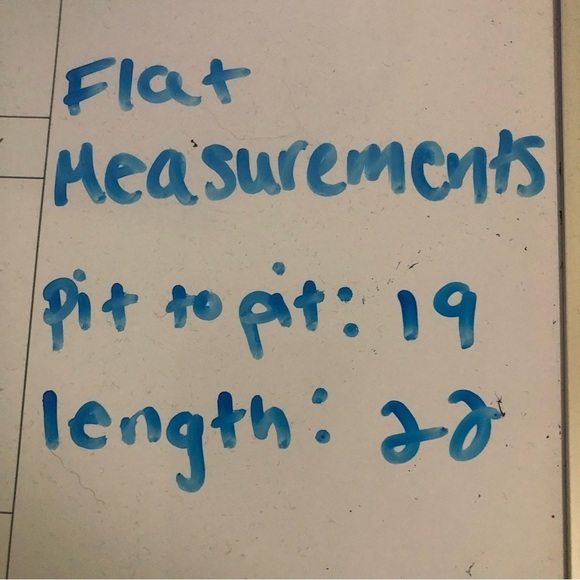 Flat
Measurements
pit to pit: 19
length: 22